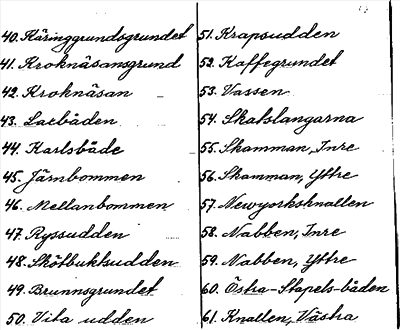 40. Käringgrundsgrundet
41. Kroknäsansgrund
42. Kroknäsan
43. Lasbåden
44. Karlsbåde
45. Järnbommen
46. Mellanbommen
47. Ryssudden
48. Skötbuktsudden
49. Brunnsgrundet
50. Vita udden
51. Krapsudden
52. Kaffegrundet
53. Vassen
54. Skatslangarna
55. Skamman, Inre
56. Skamman, Yttre
57. Newyorksknallen
58. Nabben, Inre
59. Nabben, Yttre
60. Östra-Stapels-båden
61. Knallen, Västra